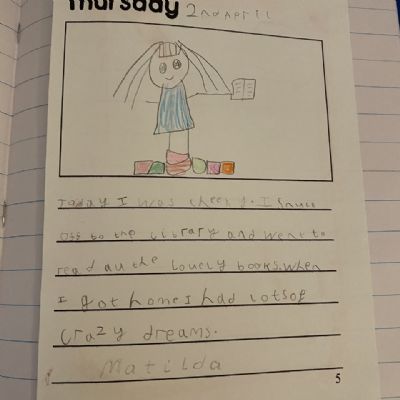 Thursday 2nd April
Today I was cheeky. I snuck
off to the library and went to
read all the lovely books. when
I got home I had lots of
crazy dreams.
Matilda
5